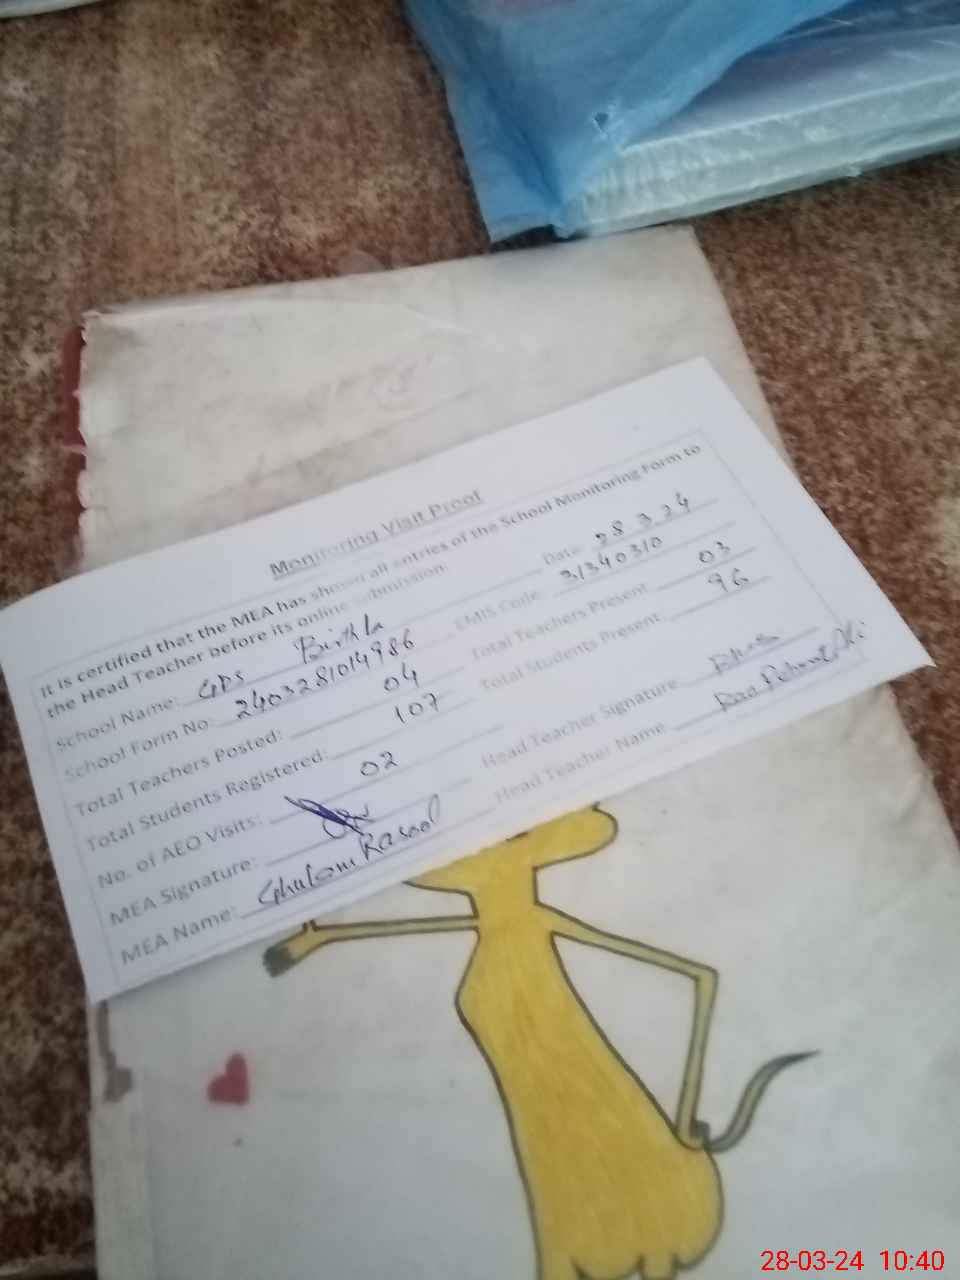 Monitoring Visit Proof
It is certified that the MEA has shown all entries of the School Monitoring Form to
the Head Teacher before its online submission.
Date 28.3.24
School Name: GPS Birthla
EMIS Code: 31340310
School Form No: 2403281014986
Total Teachers Present: 03
Total Teachers Posted: 04
Total Students Present: 96
Total Students Registered: 107
No. of AEO Visits: 02
Head Teacher Signature
MEA Signature:
Head Teacher Name Rao
MEA Name: Ghulam Rasool
28-03-24 10:40